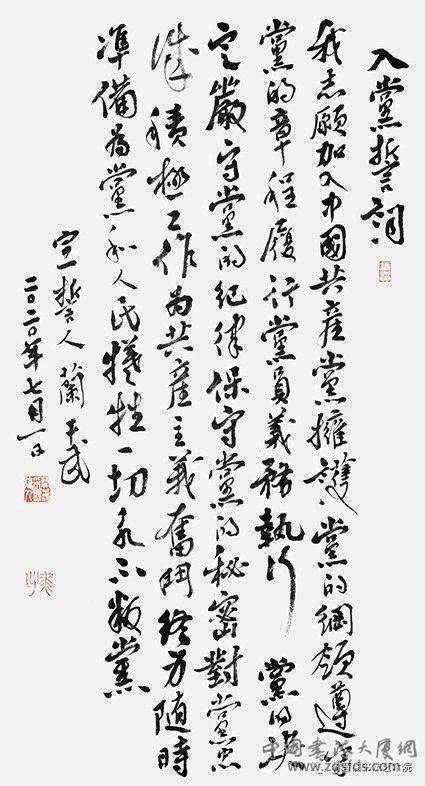 入黨誓詞
我志願加入中國共產黨擁護黨的綱領遵守
黨的章程履行黨員義務執行黨的決
定嚴守黨的紀律保守黨的秘密對黨忠
誠積極工作為共產主義奮鬥終身隨時
準備為黨和人民犧牲一切永不叛黨
宣誓人蘭武
二〇二〇年七月一日
中国书法大厦网